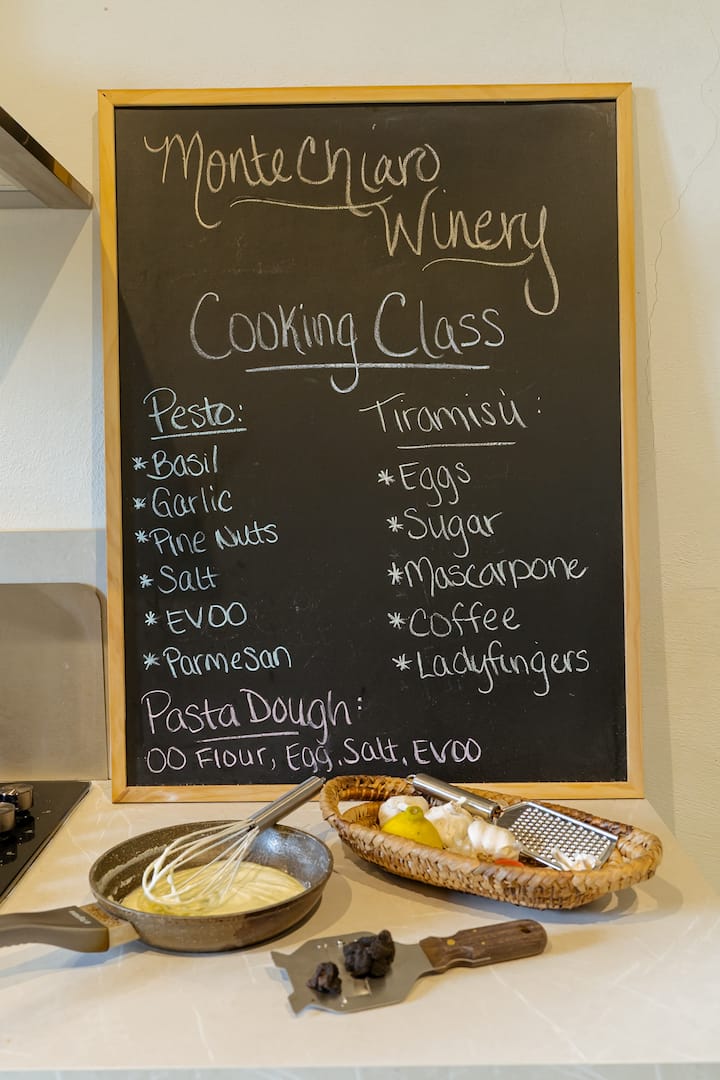 MonteChiaro
Winery
Cooking Class
Pesto:
*Basil
*Garlic
*Pine Nuts
*Salt
*EVOO
*Parmesan
Tiramisù:
*Eggs
*Sugar
*Mascarpone
*Coffee
*Ladyfingers
Pasta Dough:
00 Flour, Egg, Salt, EVOO